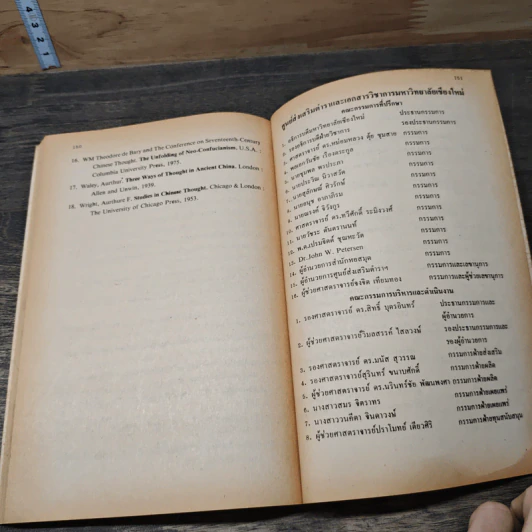 16. WM Theodore de Bary and The Conference on Seventeenth-Century
Chinese Thought, The Unfolding of Neo-Confucianism, U.S.A.,
Columbia University Press, 1975.
17. Waley, Aurthur, Three Ways of Thought in Ancient China, London :
Allen and Unwin, 1939.
18. Wright, Aurthure F. Studies in Chinese Thought, Chicago & London :
The University of Chicago Press, 1953.
ศูนย์ส่งเสริมตำราและเอกสารวิชาการมหาวิทยาลัยเชียงใหม่
คณะกรรมการที่ปรึกษา
1. อธิการบดีมหาวิทยาลัยเชียงใหม่ ประธานกรรมการ
2. รองอธิการบดีฝ่ายวิชาการ รองประธานกรรมการ
3. ศาสตราจารย์ ดร.หม่อมหลวง ตุ้ย ชุมสาย กรรมการ
4. กรรมการ
5. กรรมการ
6. กรรมการ
7. นายสุลักษณ์ ศิวรักษ์ กรรมการ
8. กรรมการ
9. นายณรงค์ กรรมการ
10. ศาสตราจารย์ ดร.ทวีศักดิ์ กรรมการ
11. นายวัชระ ตันตรานนท์ กรรมการ
12. พ.ต.เปรมจิตต์ ขุณหะวัต กรรมการ
13. Dr.John W. Petersen กรรมการ
14. ผู้อำนวยการสำนักหอสมุด กรรมการ
15. ผู้อำนวยการศูนย์ส่งเสริมตำราฯ กรรมการและเลขานุการ
16. ผู้ช่วยศาสตราจารย์จงจิต เทียมทอง กรรมการและผู้ช่วยเลขานุการ
คณะกรรมการบริหารและดำเนินงาน
1. รองศาสตราจารย์ ดร.สิทธิ์ บุตรอินทร์ ประธานกรรมการและ
ผู้อำนวยการ
2. ผู้ช่วยศาสตราจารย์วิมลสรรค์ ไสลวงษ์ รองประธานกรรมการและ
รองผู้อำนวยการ
3. รองศาสตราจารย์ ดร.มนัส สุวรรณ กรรมการฝ่ายส่งเสริม
4. รองศาสตราจารย์สุรินทร์ ขนาบศักดิ์ กรรมการฝ่ายผลิต
5. ผู้ช่วยศาสตราจารย์ ดร.นรินทร์ชัย พัฒนพงศา กรรมการฝ่ายผลิต
6. นางสาวสมร จิตราทร กรรมการฝ่ายเผยแพร่
7. นางสาววนทิตา จินดาวงษ์ กรรมการฝ่ายเผยแพร่
8. ผู้ช่วยศาสตราจารย์ปราโมทย์ เดียวศิริ กรรมการฝ่ายทุนสนับสนุน
1
2
3
4